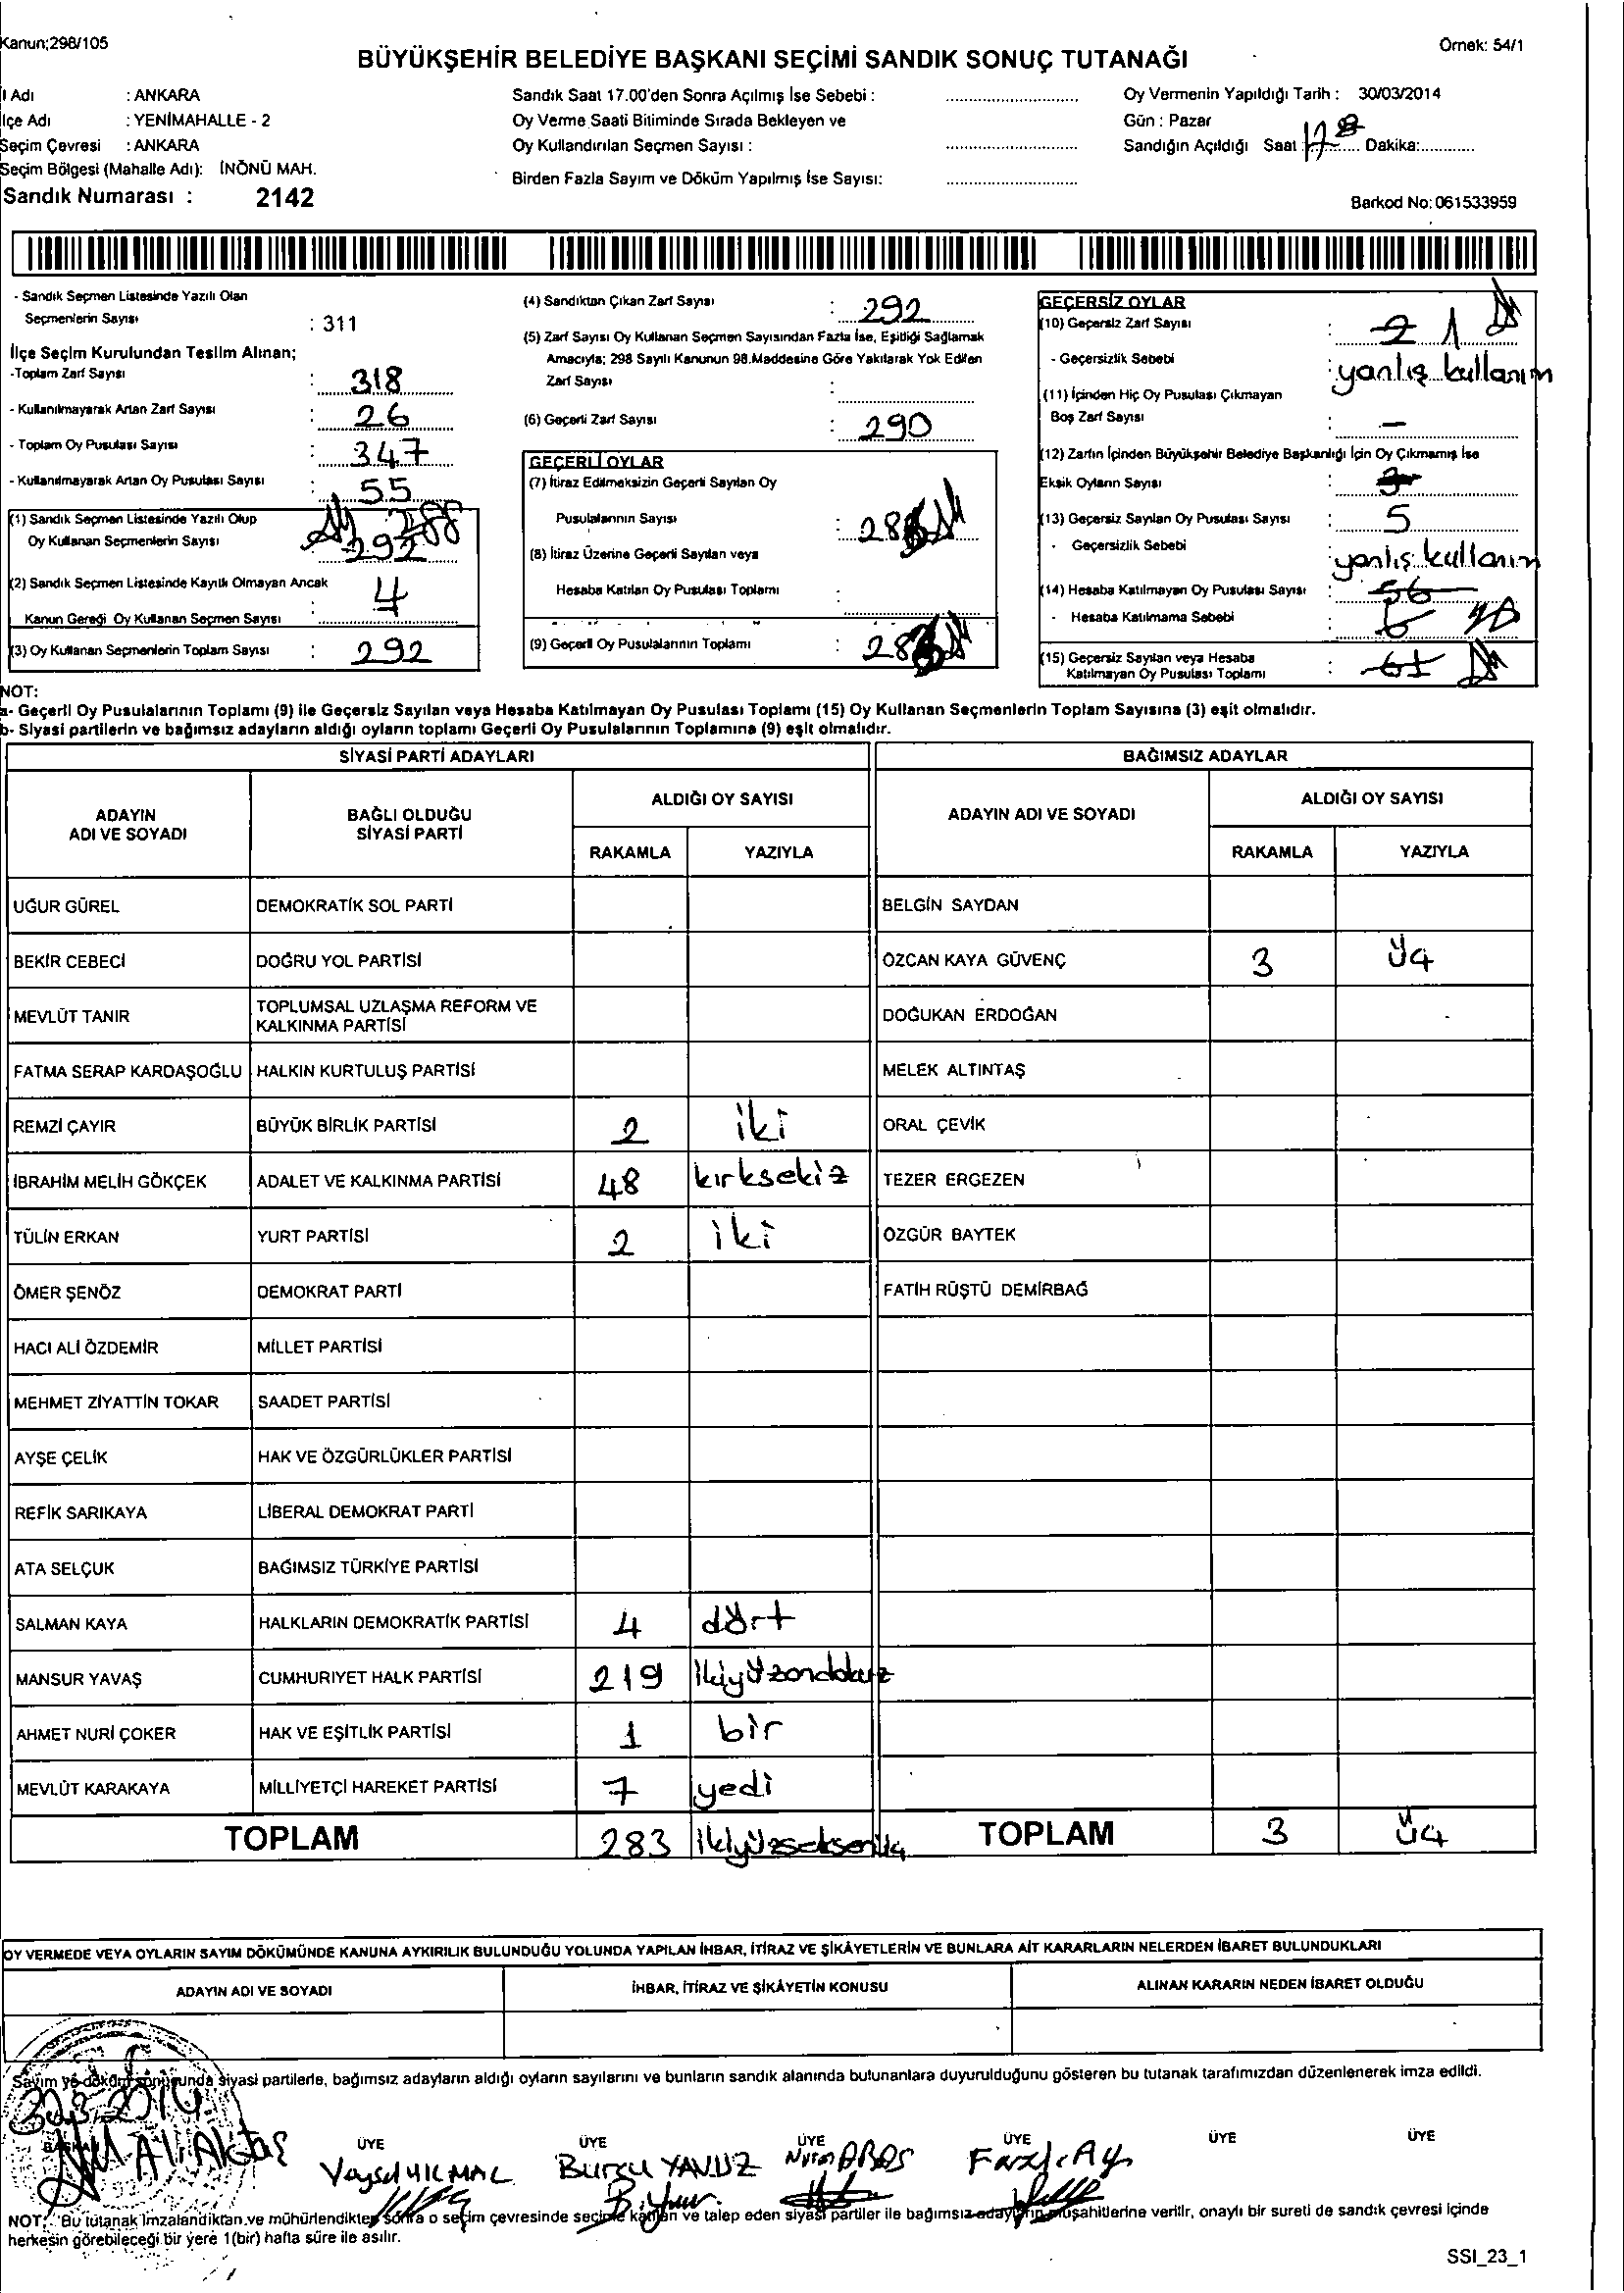 Kanun;298/105
Örnek: 54/1
BÜYÜKŞEHİR BELEDİYE BAŞKANI SEÇİMİ SANDIK SONUÇ TUTANAĞI
İl Adı : ANKARA
İlçe Adı : YENİMAHALLE - 2
Seçim Çevresi : ANKARA
Seçim Bölgesi (Mahalle Adı): İNÖNÜ MAH.
Sandık Numarası : 2142
Sandık Saat 17.00'den Sonra Açılmış İse Sebebi :
Oy Verme Saati Bitiminde Sırada Bekleyen ve
Oy Kullandırılan Seçmen Sayısı :
Birden Fazla Sayım ve Döküm Yapılmış İse Sayısı:
Oy Vermenin Yapıldığı Tarih : 30/03/2014
Gün : Pazar
Sandığın Açıldığı Saat Dakika:
Barkod No: 061533959
- Sandık Seçmen Listesinde Yazılı Olan
Seçmenlerin Sayısı : 311
İlçe Seçim Kurulundan Teslim Alınan;
-Toplam Zarf Sayısı : 318
- Kullanılmayarak Artan Zarf Sayısı : 26
- Toplam Oy Pusulası Sayısı : 347
- Kullanılmayarak Artan Oy Pusulası Sayısı : 55
(1) Sandık Seçmen Listesinde Yazılı Olup : 288
Oy Kullanan Seçmenlerin Sayısı 292
(2) Sandık Seçmen Listesinde Kayıtlı Olmayan Ancak
Kanun Gereği Oy Kullanan Seçmen Sayısı : 4
(3) Oy Kullanan Seçmenlerin Toplam Sayısı : 292
(4) Sandıktan Çıkan Zarf Sayısı : 292
(5) Zarf Sayısı Oy Kullanan Seçmen Sayısından Fazla İse, Eşitliği Sağlamak
Amacıyla; 298 Sayılı Kanunun 98.Maddesine Göre Yakılarak Yok Edilen
Zarf Sayısı :
(6) Geçerli Zarf Sayısı : 290
GEÇERLİ OYLAR
(7) İtiraz Edilmeksizin Geçerli Sayılan Oy
Pusulalarının Sayısı :
(8) İtiraz Üzerine Geçerli Sayılan veya
Hesaba Katılan Oy Pusulası Toplamı :
(9) Geçerli Oy Pusulalarının Toplamı :
GEÇERSİZ OYLAR
(10) Geçersiz Zarf Sayısı : 2 1
- Geçersizlik Sebebi : yanlış kullanım
(11) İçinden Hiç Oy Pusulası Çıkmayan
Boş Zarf Sayısı : -
(12) Zarfın İçinden Büyükşehir Belediye Başkanlığı İçin Oy Çıkmamış İse
Eksik Oyların Sayısı :
(13) Geçersiz Sayılan Oy Pusulası Sayısı : 5
- Geçersizlik Sebebi : yanlış kullanım
(14) Hesaba Katılmayan Oy Pusulası Sayısı : 56
- Hesaba Katılmama Sebebi : 6
(15) Geçersiz Sayılan veya Hesaba
Katılmayan Oy Pusulası Toplamı : 61
NOT:
a- Geçerli Oy Pusulalarının Toplamı (9) ile Geçersiz Sayılan veya Hesaba Katılmayan Oy Pusulası Toplamı (15) Oy Kullanan Seçmenlerin Toplam Sayısına (3) eşit olmalıdır.
b- Siyasi partilerin ve bağımsız adayların aldığı oyların toplamı Geçerli Oy Pusulalarının Toplamına (9) eşit olmalıdır.
SİYASİ PARTİ ADAYLARI BAĞIMSIZ ADAYLAR
ADAYIN ADI VE SOYADI BAĞLI OLDUĞU SİYASİ PARTİ ALDIĞI OY SAYISI ADAYIN ADI VE SOYADI ALDIĞI OY SAYISI
RAKAMLA YAZIYLA RAKAMLA YAZIYLA
UĞUR GÜREL DEMOKRATİK SOL PARTİ BELGİN SAYDAN
BEKİR CEBECİ DOĞRU YOL PARTİSİ ÖZCAN KAYA GÜVENÇ 3 üç
MEVLÜT TANIR TOPLUMSAL UZLAŞMA REFORM VE KALKINMA PARTİSİ DOĞUKAN ERDOĞAN
FATMA SERAP KARDAŞOĞLU HALKIN KURTULUŞ PARTİSİ MELEK ALTINTAŞ
REMZİ ÇAYIR BÜYÜK BİRLİK PARTİSİ 2 iki ORAL ÇEVİK
İBRAHİM MELİH GÖKÇEK ADALET VE KALKINMA PARTİSİ 48 kırksekiz TEZER ERGEZEN
TÜLİN ERKAN YURT PARTİSİ 2 iki ÖZGÜR BAYTEK
ÖMER ŞENÖZ DEMOKRAT PARTİ FATİH RÜŞTÜ DEMİRBAĞ
HACI ALİ ÖZDEMİR MİLLET PARTİSİ
MEHMET ZİYATTİN TOKAR SAADET PARTİSİ
AYŞE ÇELİK HAK VE ÖZGÜRLÜKLER PARTİSİ
REFİK SARIKAYA LİBERAL DEMOKRAT PARTİ
ATA SELÇUK BAĞIMSIZ TÜRKİYE PARTİSİ
SALMAN KAYA HALKLARIN DEMOKRATİK PARTİSİ 4 dört
MANSUR YAVAŞ CUMHURİYET HALK PARTİSİ 219 ikiyüzondokuz
AHMET NURİ ÇOKER HAK VE EŞİTLİK PARTİSİ 1 bir
MEVLÜT KARAKAYA MİLLİYETÇİ HAREKET PARTİSİ 7 yedi
TOPLAM 283 ikiyüzseksenüç TOPLAM 3 üç
OY VERMEDE VEYA OYLARIN SAYIM DÖKÜMÜNDE KANUNA AYKIRILIK BULUNDUĞU YOLUNDA YAPILAN İHBAR, İTİRAZ VE ŞİKÂYETLERİN VE BUNLARA AİT KARARLARIN NELERDEN İBARET BULUNDUKLARI
ADAYIN ADI VE SOYADI İHBAR, İTİRAZ VE ŞİKÂYETİN KONUSU ALINAN KARARIN NEDEN İBARET OLDUĞU
Sayım ve döküm sonucunda siyasi partilerle, bağımsız adayların aldığı oyların sayılarını ve bunların sandık alanında bulunanlara duyurulduğunu gösteren bu tutanak tarafımızdan düzenlenerek imza edildi.
30.3.2014
BAŞKAN ÜYE ÜYE ÜYE ÜYE ÜYE ÜYE
Ali Aktaş Veysel YILMAZ Burcu YAVUZ
NOT: Bu tutanak imzalandıktan ve mühürlendikten sonra o seçim çevresinde seçime katılan ve talep eden siyasi partiler ile bağımsız adayların müşahitlerine verilir, onaylı bir sureti de sandık çevresi içinde
herkesin görebileceği bir yere 1(bir) hafta süre ile asılır.
SSI_23_1